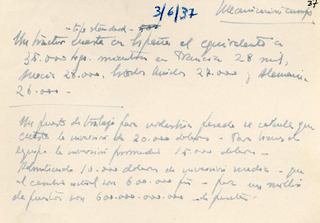 37
3/6/37
Mecanizacion campo
- tipo standard -
Un tractor cuesta en España el equivalente a
35.000 ptas. mientras en Francia 28 mil,
Suecia 28.000, Estados Unidos 27.000 y Alemania
26.000 -
Un puesto de trabajo para industria pesada se calcula que
cuesta la inversión de 20.000 dolares - Para bienes de
equipo la inversión promedio 15.000 dolares -
Admitiendo 10.000 dolares de inversión media - que
al cambio actual son 600.000 pts - para un millon
de puestos son 600.000.000.000 - de pesetas -